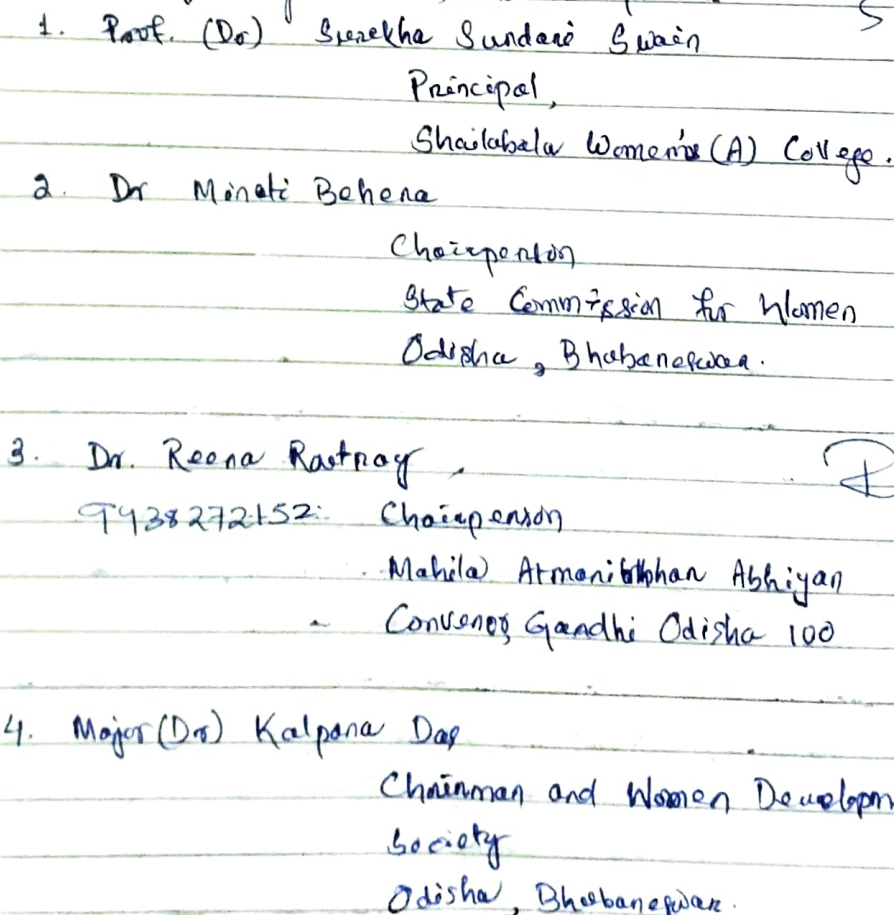 1. Prof. (Dr) Surekha Sundari Swain
Principal,
Shailabala Women's (A) College.
2. Dr Minati Behera
Chairperson
State Commission for Women
Odisha, Bhubaneswar.
3. Dr. Reena Routray
9938272152: Chairperson
Mahila Atmanirbhar Abhiyan
Convenor Gandhi Odisha 100
4. Major (Dr) Kalpana Das
Chairman and Women Developm
Society
Odisha, Bhubaneswar.